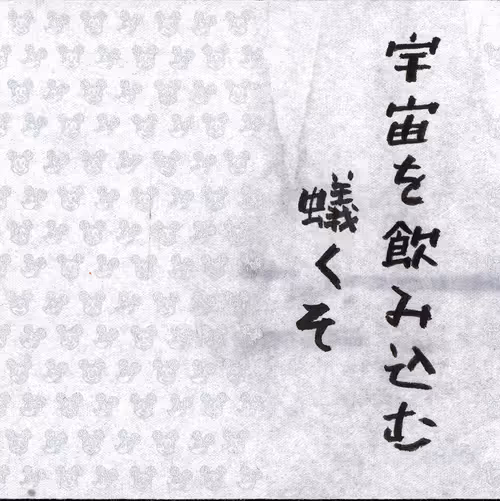 宇宙を飲み込む
蟻くそ